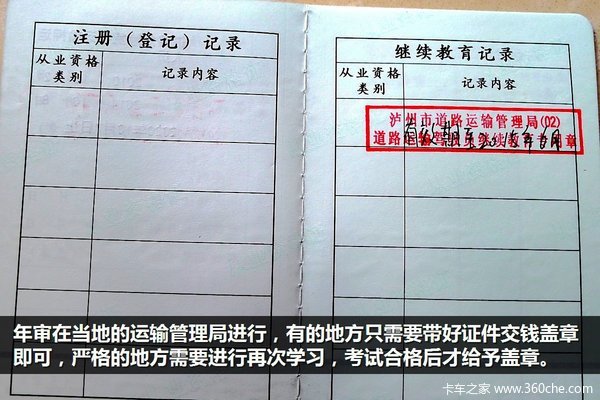 注册（登记）记录
从业资格
类别
记录内容
继续教育记录
从业资格
类别
记录内容
泸州市道路运输管理局(02)
道路运输驾驶员继续教育专用章
有效期至2015年
年审在当地的运输管理局进行，有的地方只需要带好证件交钱盖章
即可，严格的地方需要进行再次学习，考试合格后才给予盖章。
卡车之家 www.360che.com